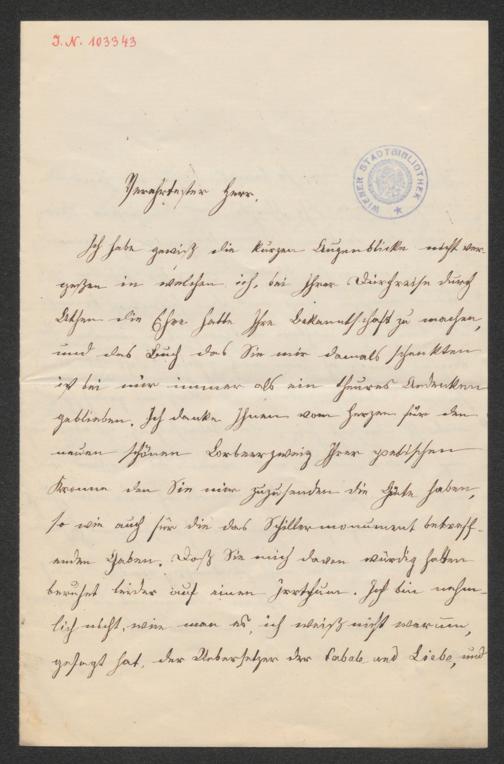 J. N. 103343
WIENER STADTBIBLIOTHEK
Verehrtester Herr,
Ich habe gewiß die kurzen Augenblicke nicht ver-
geßen in welchen ich, bei Ihrer Durchreise durch
Athen die Ehre hatte Ihre Bekanntschaft zu machen,
und das Buch das Sie mir damals schenkten
ist bei mir immer als ein theures Andenken
geblieben. Ich danke Ihnen vom Herzen für den
neuen schönen Lorberrzweig Ihrer poetischen
Kronne den Sie mir zuzusenden die Güte haben,
so wie auch für die das Schillermonument betreff-
enden Gaben. Daß Sie mich davon würdig halten
beruhet leider auf einen Irrthum. Ich bin nehm-
lich nicht, wie man es, ich weiß nicht warum,
gesagt hat, der Uebersetzer der Cabale und Liebe, und